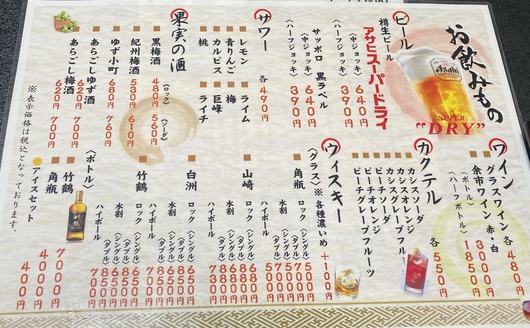 お飲みもの
Asahi
SUPER
"DRY"
ビール
樽生ビール
アサヒスーパードライ
(中ジョッキ) 640円
(ハーフジョッキ) 390円
サッポロ 黒ラベル
(中ジョッキ) 640円
(ハーフジョッキ) 390円
サワー
各490円
レモン
ライム
青りんご
梅
カルピス
巨峰
桃
ライチ
果実の酒
(ロック) (ソーダ)
黒梅酒 480円 560円
紀州梅酒 530円 610円
ゆず小町 680円 760円
あらごしゆず酒 620円 700円
あらごし梅酒 620円 700円
※表示価格は税込となっております。
ワイン
グラスワイン 赤・白 各480円
余市ワイン
(ボトル) 3000円
(ハーフボトル) 1850円
カクテル
各550円
カシスソーダ
カシスオレンジ
カシスグレープフルーツ
ピーチソーダ
ピーチオレンジ
ピーチグレープフルーツ
ウィスキー
(グラス) ※各種濃いめ +100円
角瓶
ロック
(シングル)
(ダブル)
水割
(シングル)
(ダブル)
ハイボール
山崎
ロック
(シングル)
(ダブル)
水割
(シングル)
(ダブル)
ハイボール
白洲
ロック
(シングル)
(ダブル)
水割
(シングル)
(ダブル)
ハイボール
竹鶴
ロック
(シングル)
(ダブル)
水割
(シングル)
(ダブル)
ハイボール
(ボトル)
竹鶴
角瓶
アイスセット 400円